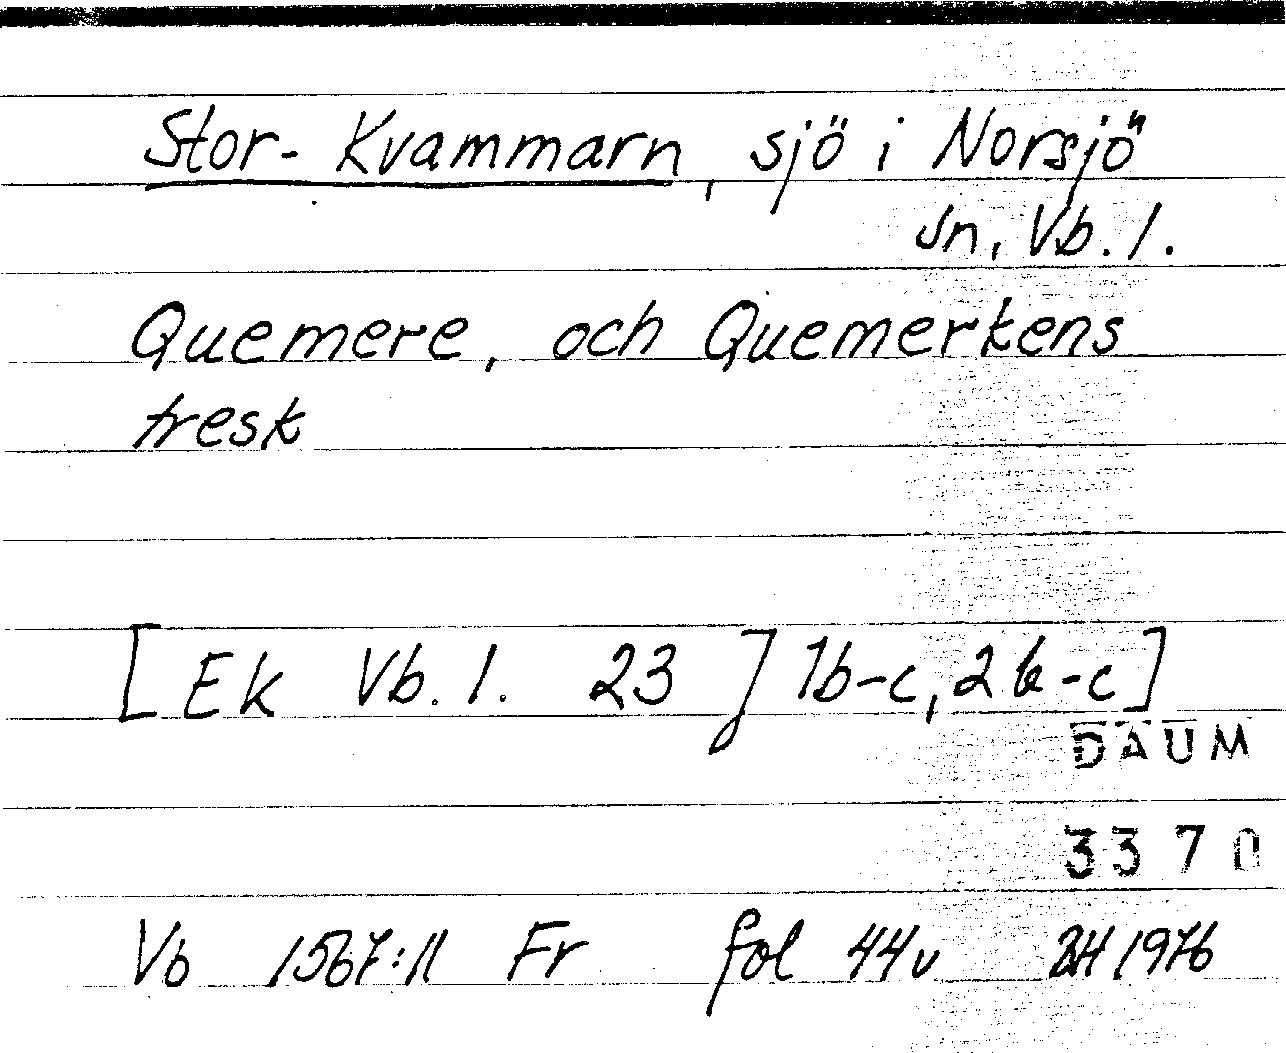 Stor-Kvammarn, sjö i Norsjö
sn, Vb. l.
Quemere, och Quemerkens
tresk
[Ek Vb. l. 23 J 1b-c, 2b-c]
DAUM
3370
Vb 1567:11 Fr fol 44v 1976